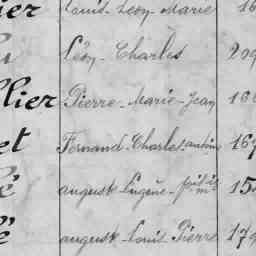 ier Louis-Léon-Marie 16
Léon-Charles 209
llier Pierre-Marie-Jean 16
et Fernand-Charles-antoine 167
é auguste Eugène 15
é auguste-Louis-Pierre 179